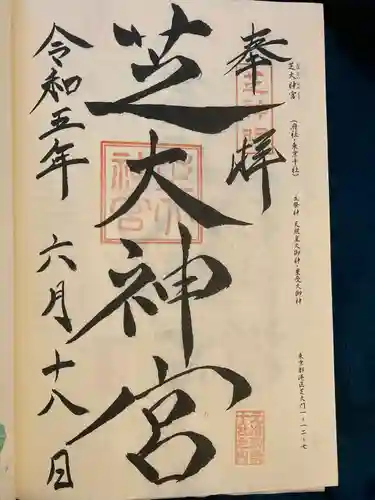 芝大神宮
(元准勅祭・東京十社)
主祭神 天照皇大御神・豊受大御神
東京都港区芝大門一-一二-七
奉拝
芝大神宮
令和五年 六月十八日